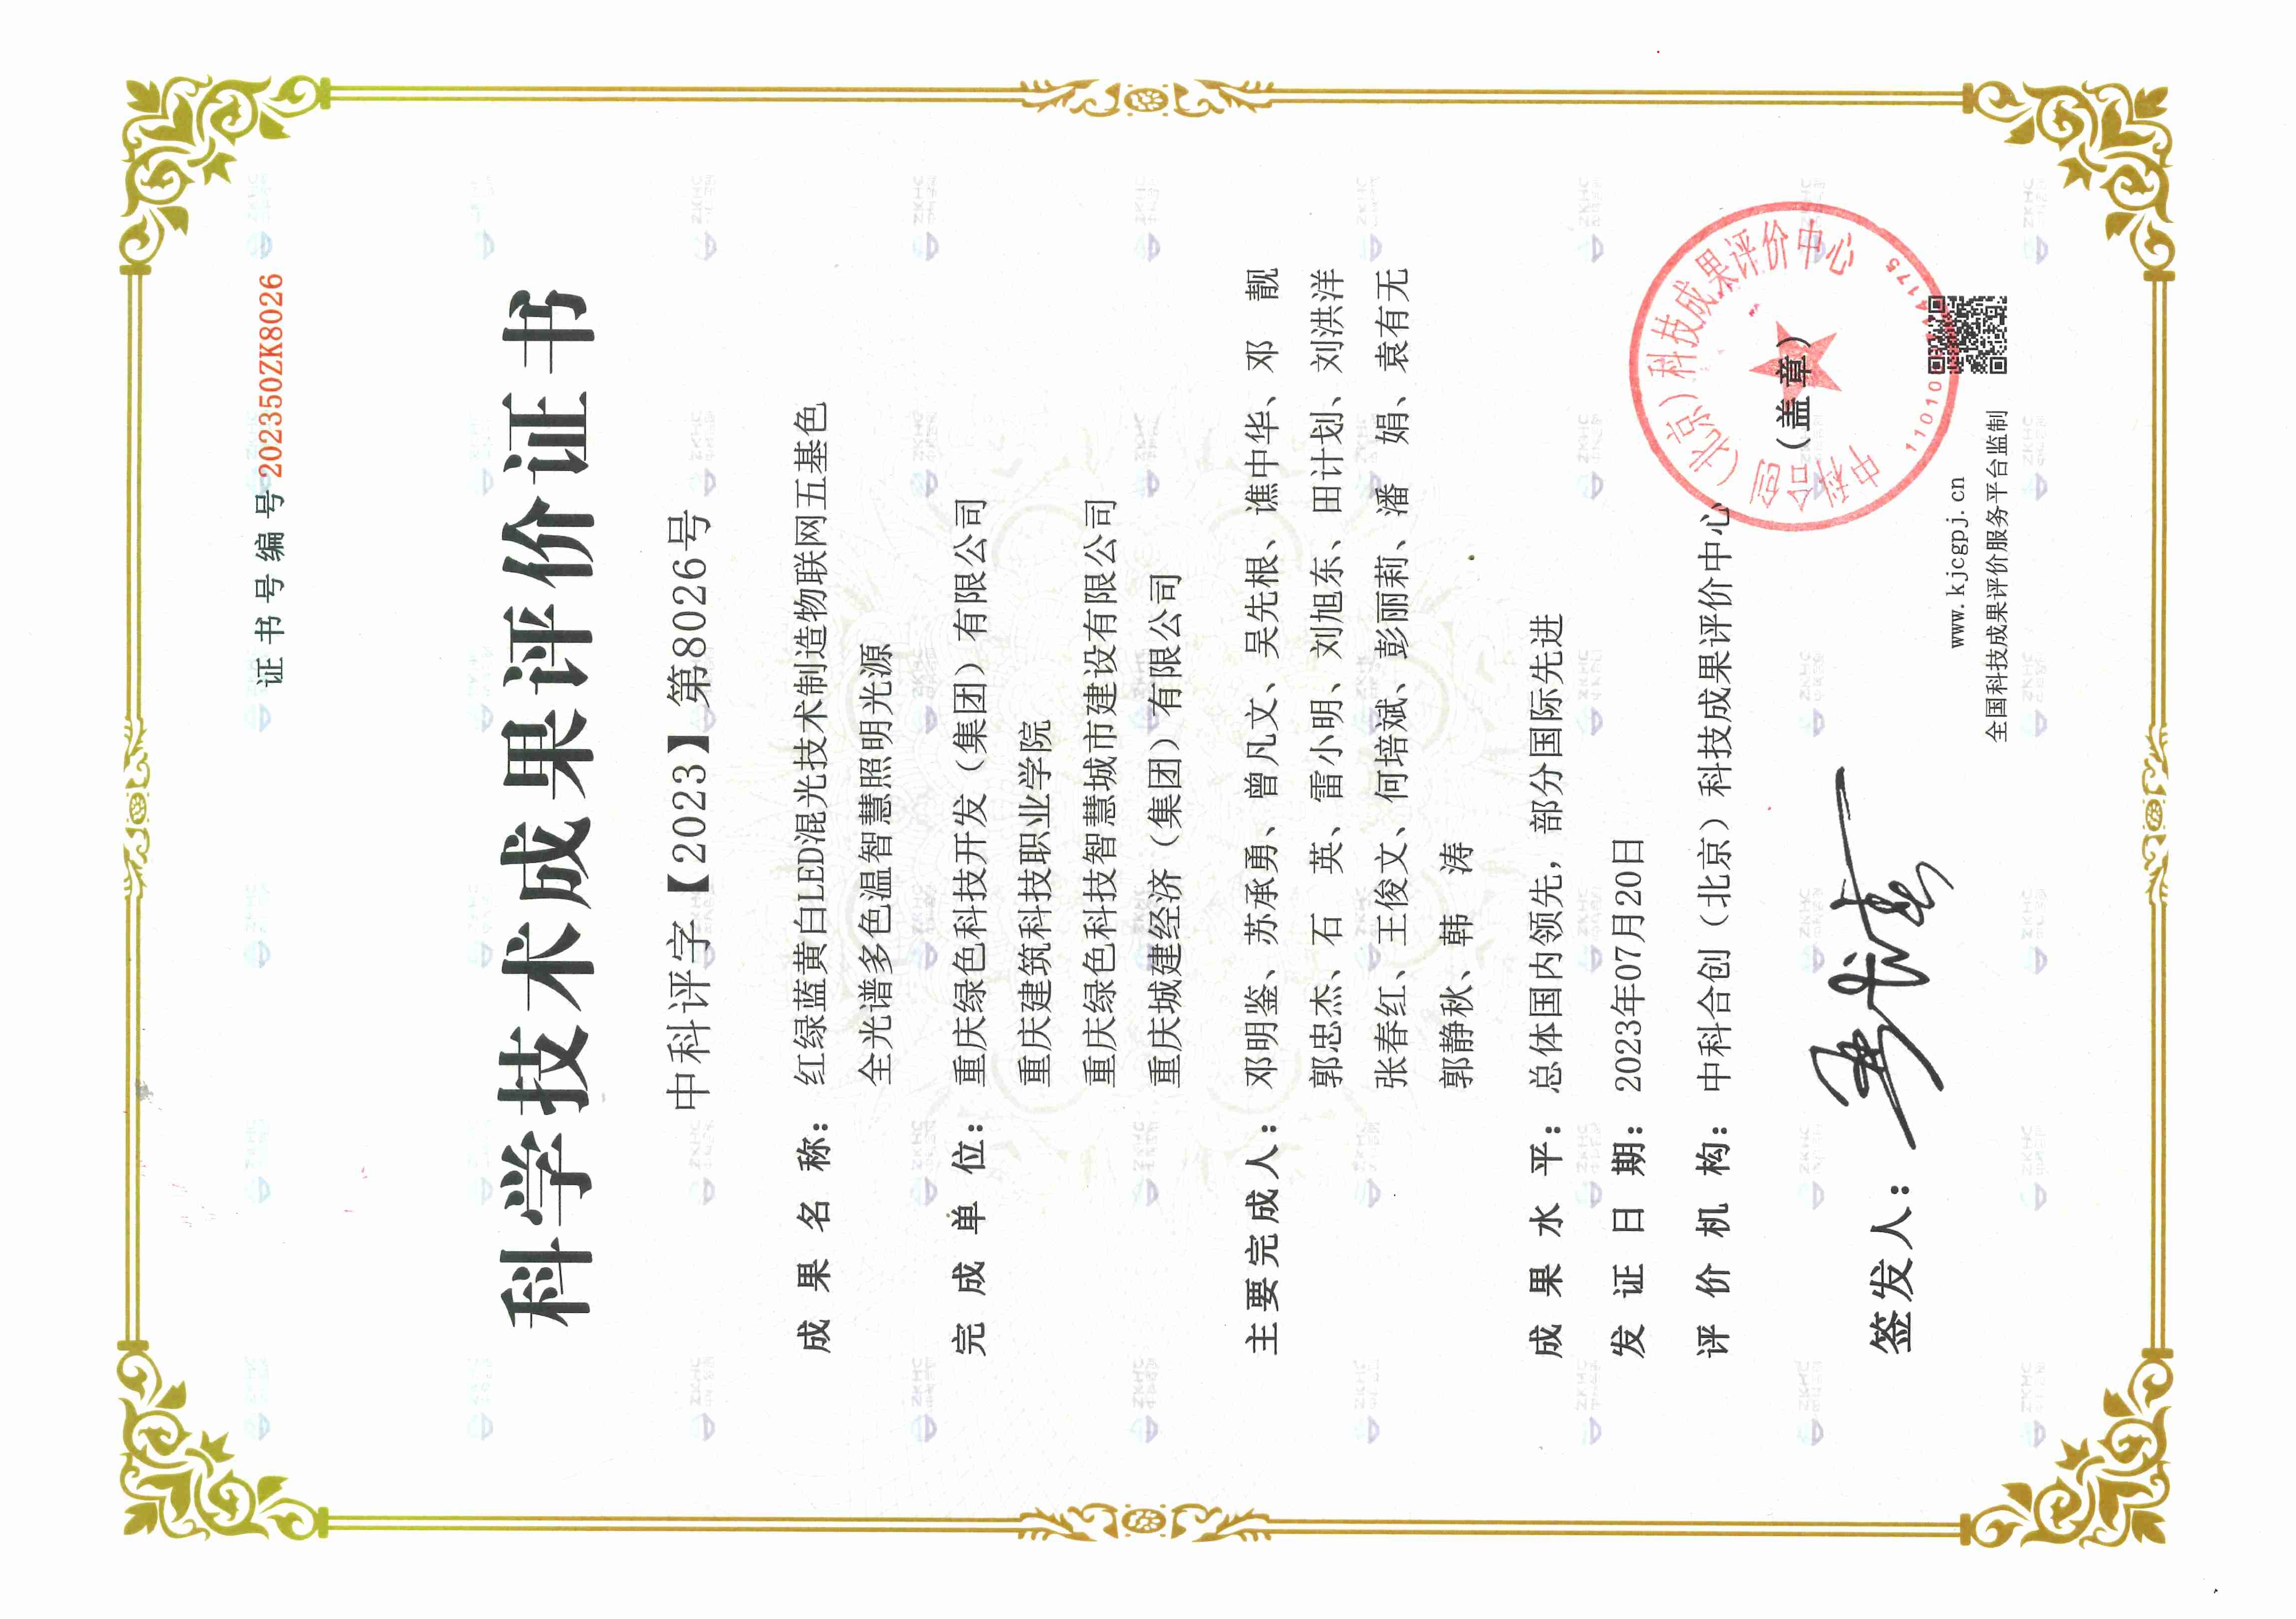 证书号编号 202350ZK8026
科学技术成果评价证书
中科评字【2023】第8026号
成果名称：红绿蓝黄白LED混光技术制造物联网五基色
全光谱多色温智慧照明光源
完成单位：重庆绿色科技开发（集团）有限公司
重庆建筑科技职业学院
重庆绿色科技智慧城市建设有限公司
重庆城建经济（集团）有限公司
主要完成人：邓明鉴、苏承勇、曾凡文、吴先根、谯中华、邓 靓
郭忠杰、石 英、雷小明、刘旭东、田计划、刘洪洋
张春红、王俊文、何培斌、彭丽莉、潘 娟、袁有无
郭静秋、韩 涛
成果水平：总体国内领先，部分国际先进
发证日期：2023年07月20日
评价机构：中科合创（北京）科技成果评价中心
中科合创（北京）科技成果评价中心
（盖章）
签发人：
www.kjcgpj.cn
全国科技成果评价服务平台监制
ZKHC